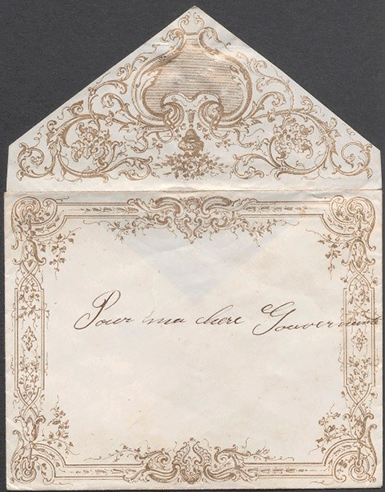 Pour ma chere Gouvernante